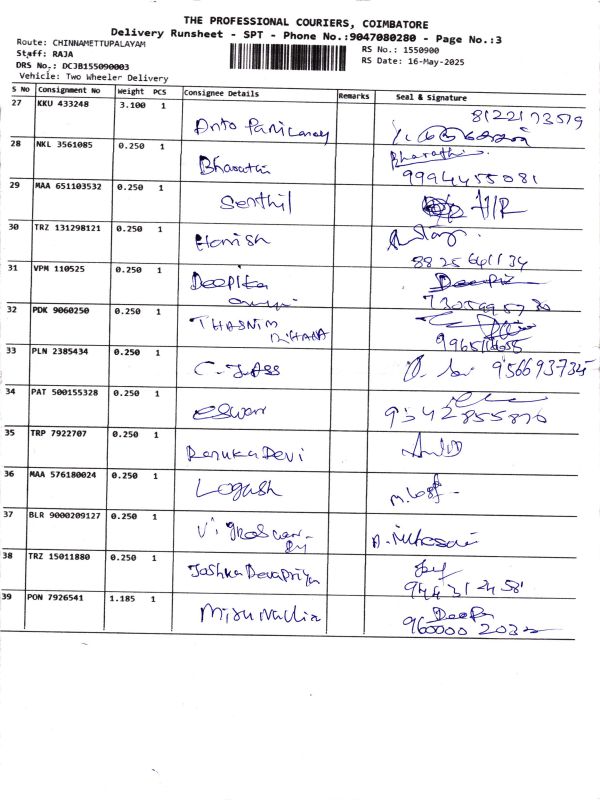 THE PROFESSIONAL COURIERS, COIMBATORE
Delivery Runsheet - SPT - Phone No.:9047080280 - Page No.:3
Route: CHINNAMETTUPALAYAM
RS No.: 1550900
Staff: RAJA
RS Date: 16-May-2025
DRS No.: DCJB155090003
Vehicle: Two Wheeler Delivery
S No Consignment No Weight PCS Consignee Details Remarks Seal & Signature
27 KKU 433248 3.100 1 8122173579
28 NKL 3561085 0.250 1 Bharathi Bharathi
9994455081
29 MAA 651103532 0.250 1 Senthil
30 TRZ 131298121 0.250 1 Harish
31 VPM 110525 0.250 1 Deepika
32 PDK 9060250 0.250 1 THASNIM
RIHANA
33 PLN 2385434 0.250 1 C. JASS 9566937345
34 PAT 500155328 0.250 1 eswar 9342855876
35 TRP 7922707 0.250 1 Renuka Devi
36 MAA 576180024 0.250 1 Logesh
37 BLR 9000209127 0.250 1
38 TRZ 15011880 0.250 1
39 PON 7926541 1.185 1 Deepa